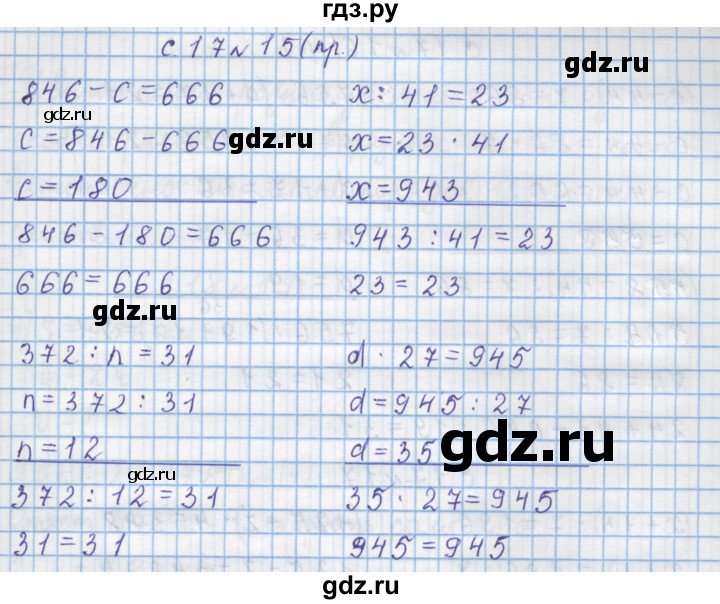 гдз.ру
с 17 № 15 (пр.)
846 - с = 666
с = 846 - 666
с = 180
846 - 180 = 666
666 = 666
x : 41 = 23
x = 23 · 41
x = 943
943 : 41 = 23
23 = 23
372 : n = 31
n = 372 : 31
n = 12
372 : 12 = 31
31 = 31
d · 27 = 945
d = 945 : 27
d = 35
35 · 27 = 945
945 = 945
gdz.ru
gdz.ru
gdz.ru
gdz.ru
gdz.ru
gdz.ru
gdz.ru
gdz.ru